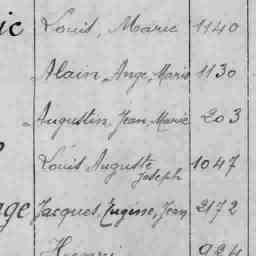 ic Louis, Marie 1140
Alain, Ange, Marie 1130
Augustin, Jean, Marie 203
Louis Auguste 1047
Joseph
age Jacques, Eugène, Jean 2172
Henri 924